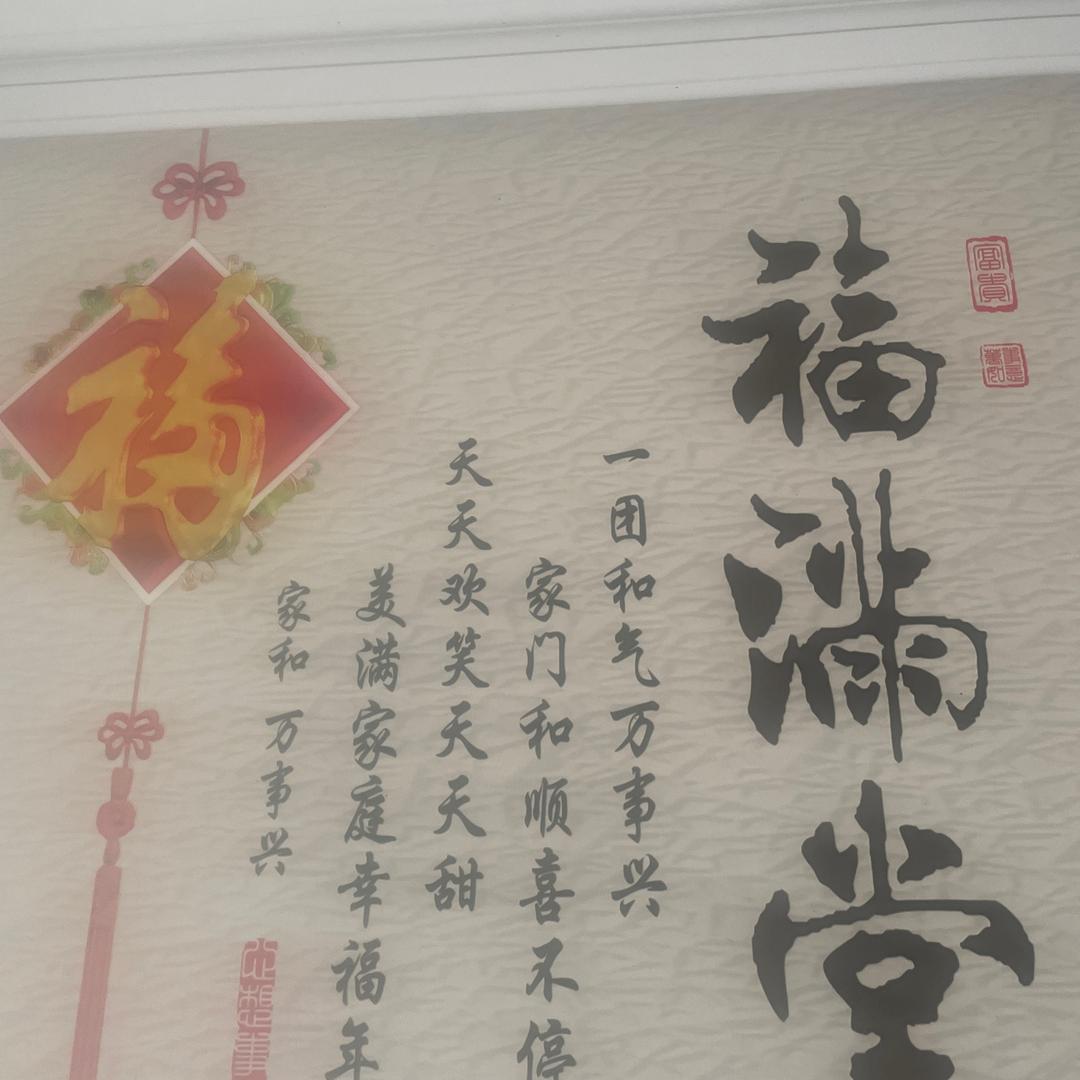 福满堂
富贵
万事如意
一团和气万事兴
家门和顺喜不停
天天欢笑天天甜
美满家庭幸福年
家和 万事兴
福